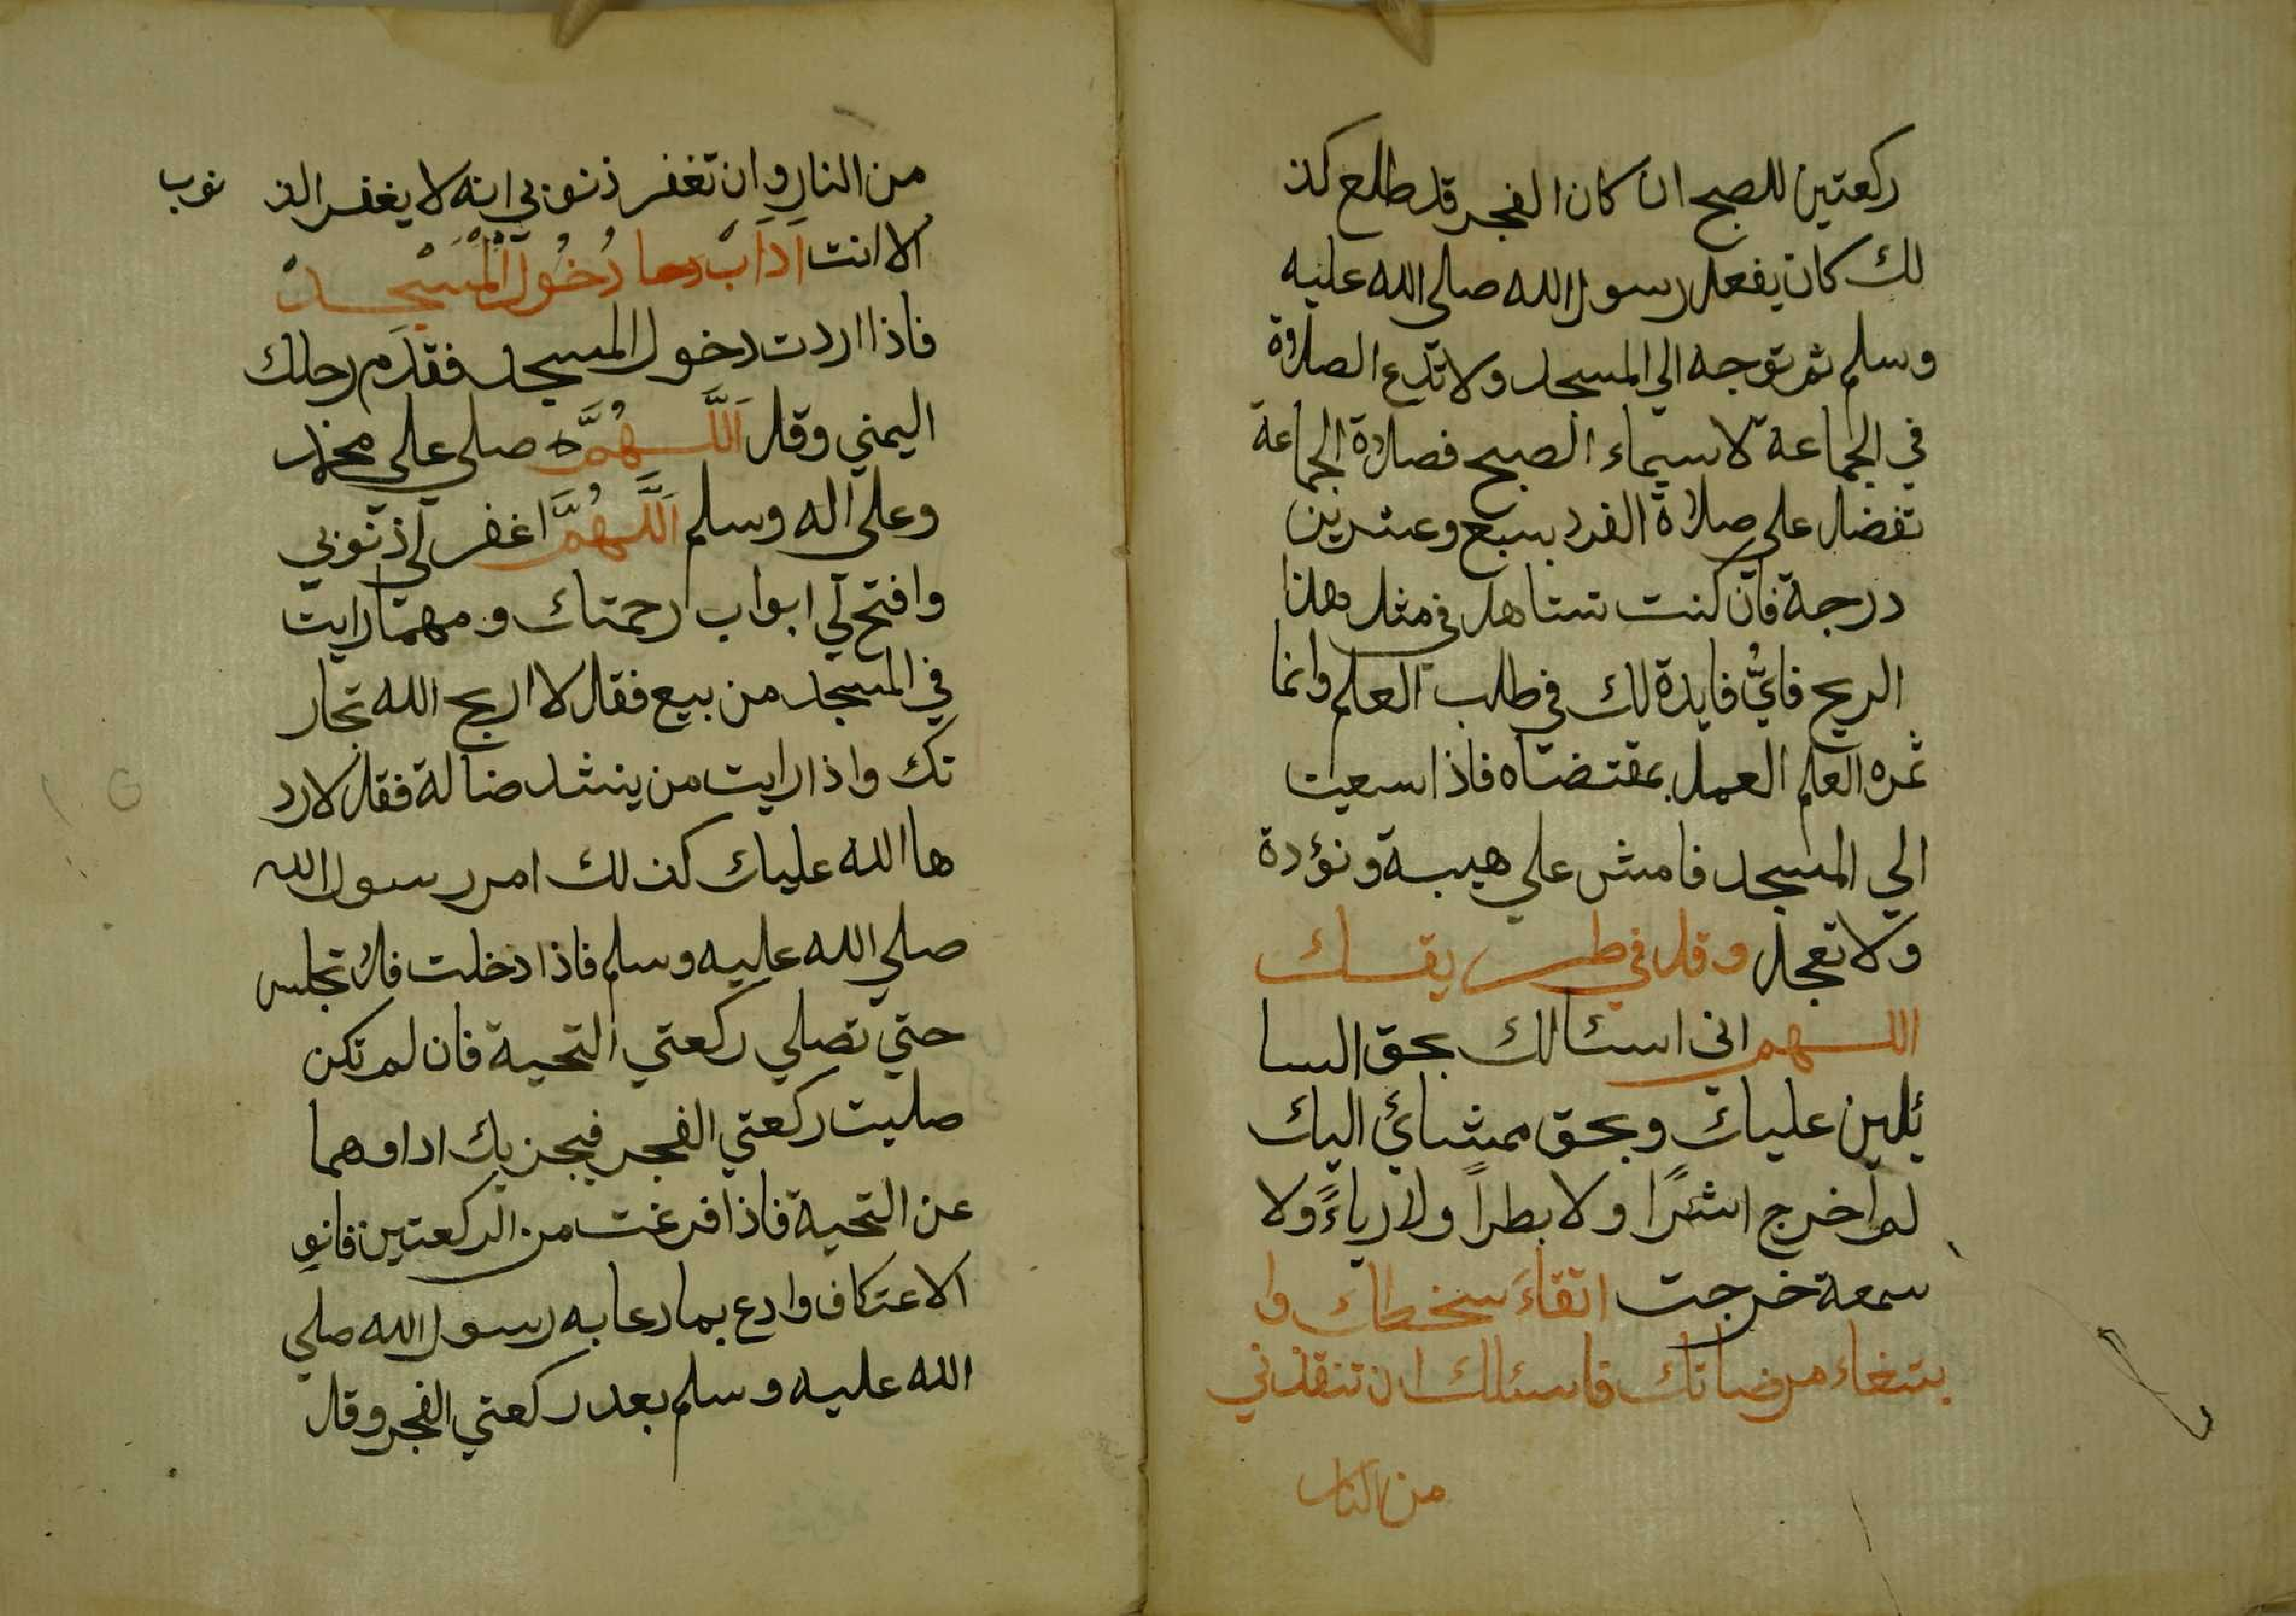 ركعتين للصبح ان كان الفجر قد طلع كذ
لك كان يفعل رسول الله صلي الله عليه
وسلم ثم توجه الي المسجد ولا تدع الصلاة
في الجماعة لا سيماء الصبح فصلاة الجماعة
تفضل علي صلاة الفرد بسبع وعشرين
درجة فان كنت تتساهل في مثل هذا
الربح فايُّ فايدة لك في طلب العلم وانما
ثمره العلم العمل بمقتضاه فاذا سعيت
الي المسجد فامش علي هيبة وتؤدة
ولا تعجل وقل في طريقك
اللهم اني اسئالك بحق السا
ئلين عليك وبحق ممشائ اليك
لم اخرج اشرًا ولا بطراً ولا رياءً ولا
سمعة خرجت اتقاءَ سخطك وا
بتغاء مرضاتك فاسئلك ان تنقذني
من النار
من النار وان تغفر ذنوبي انه لا يغفر الذ نوب
الا انت اَدَاَبْ دُخُولْ اَلْمَسْجِدْ
فاذا اردت دخول المسجد فقدَم رجلك
اليمني وقل اَللَّهُمَّ صلي علي محمد
وعلي اله وسلم اَللَّهُمَّ اغفر لي ذنوبي
وافتح لي ابواب رحمتك ومهما رايت
في المسجد من بيع فقل لا اربح الله تجار
تك واذا رايت من ينشد ضالة فقل لا رد
ها الله عليك كذلك امر رسول الله
صلي الله عليه وسلم فاذا دخلت فلا تجلس
حتي تصلي ركعتي التحية فان لم تكن
صليت ركعتي الفجر فيجزيك اداوهما
عن التحية فاذا فرغت من الركعتين فانوِ
الاعتكاف وادع بما دعا به رسول الله صلي
الله عليه وسلم بعد ركعتي الفجر وقل